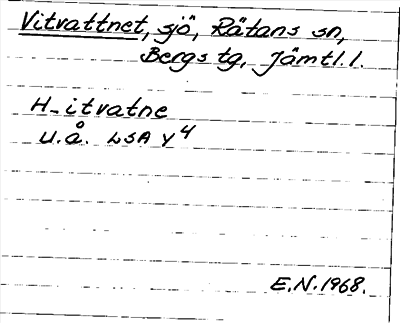 Vitvattnet, sjö, Rätans sn,
Bergs tg, Jämtl.l.
H-itvatne
u.å. LSA Y4
E.N.1968.